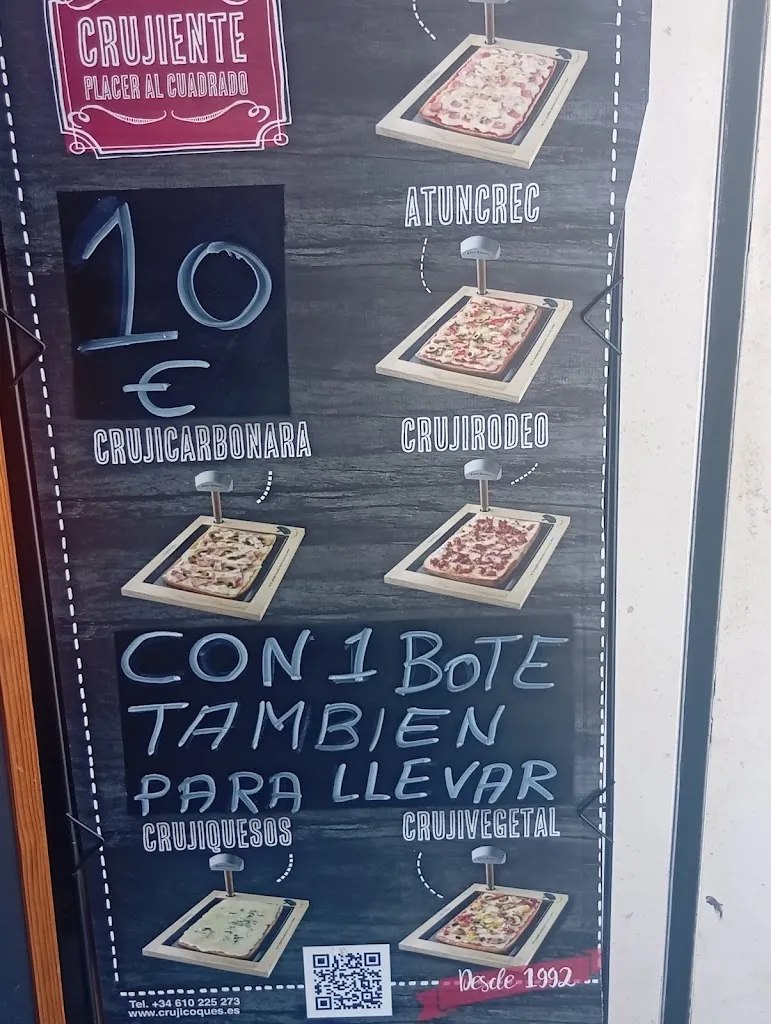 CRUJIENTE
PLACER AL CUADRADO
ATUNCREC
10
€
CRUJICARBONARA
CRUJIRODEO
CON 1 BOTE
TAMBIEN
PARA LLEVAR
CRUJIQUESOS
CRUJIVEGETAL
Desde 1992
Tel. +34 610 225 273
www.crujicoques.es